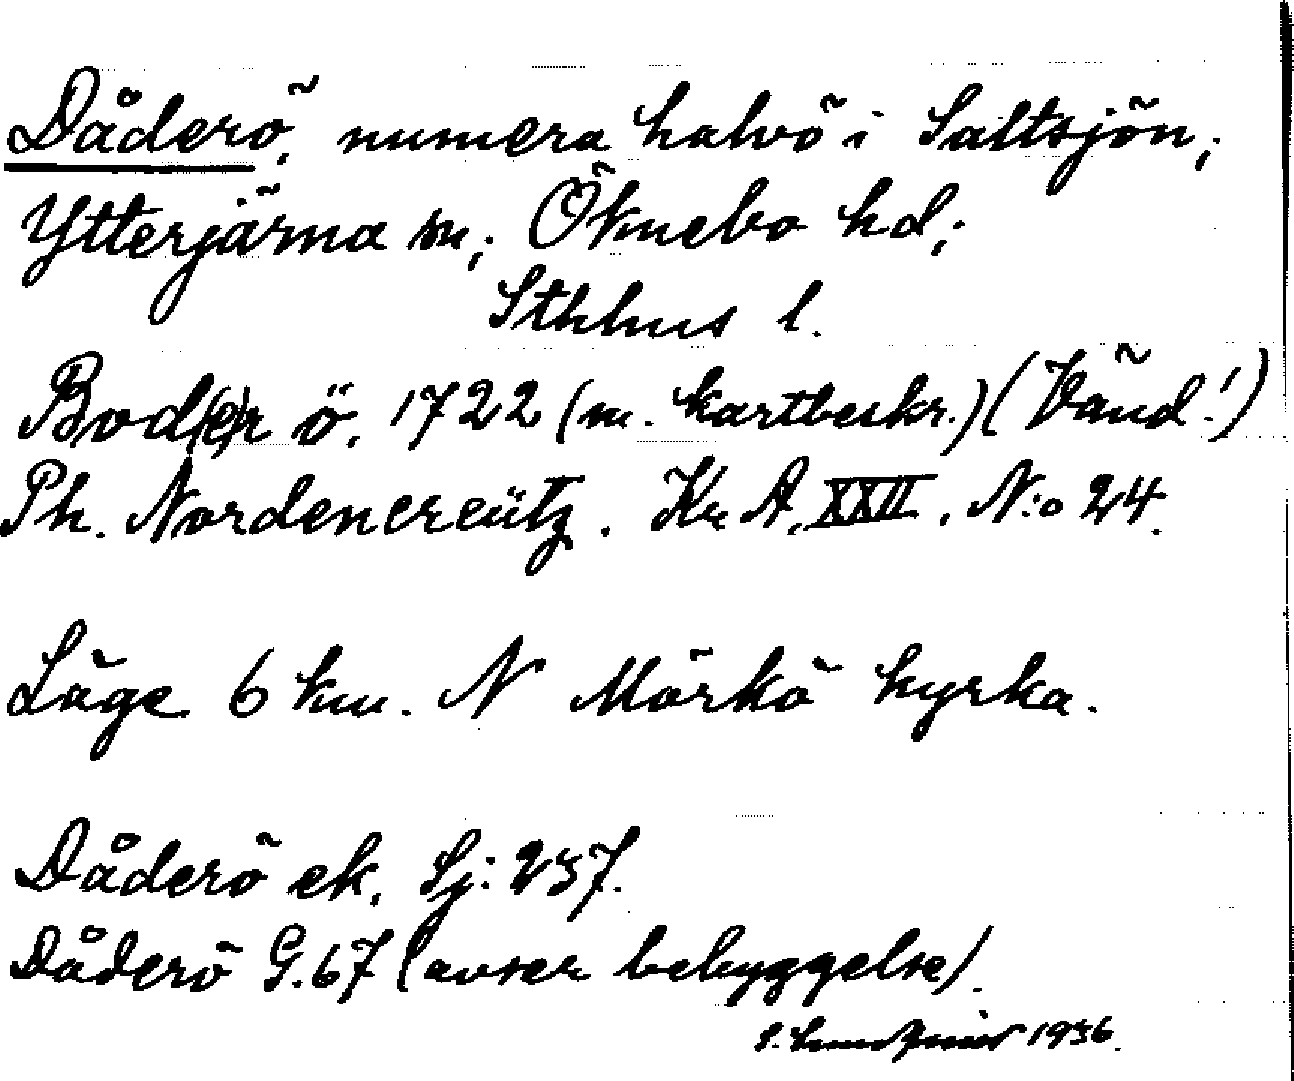 Dåderö, numera halvö i Saltsjön;
Ytterjärna sn; Öknebo hd;
Sthlms l.
Bod(e)r ö. 1722 (m. kartbeskr.) (Vänd!)
Ph. Nordencreütz. Kr. A. XXII. N:o 24.
Läge 6 km. N Mörkö kyrka.
Dåderö ek. Sj: 237.
Dåderö G. 67 (avser bebyggelse).
S. 1936.